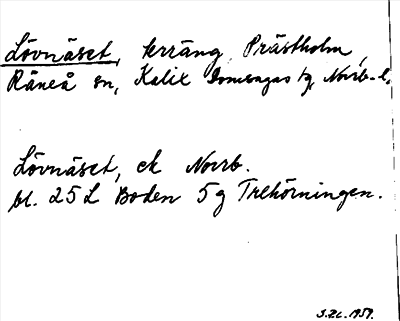 Lövnäset, terräng, Prästholm,
Råneå sn, Kalix domsagas tg, Norrb. l.
Lövnäset, ek Norrb.
bl. 25 L Boden 5 g Trehörningen.
1957.